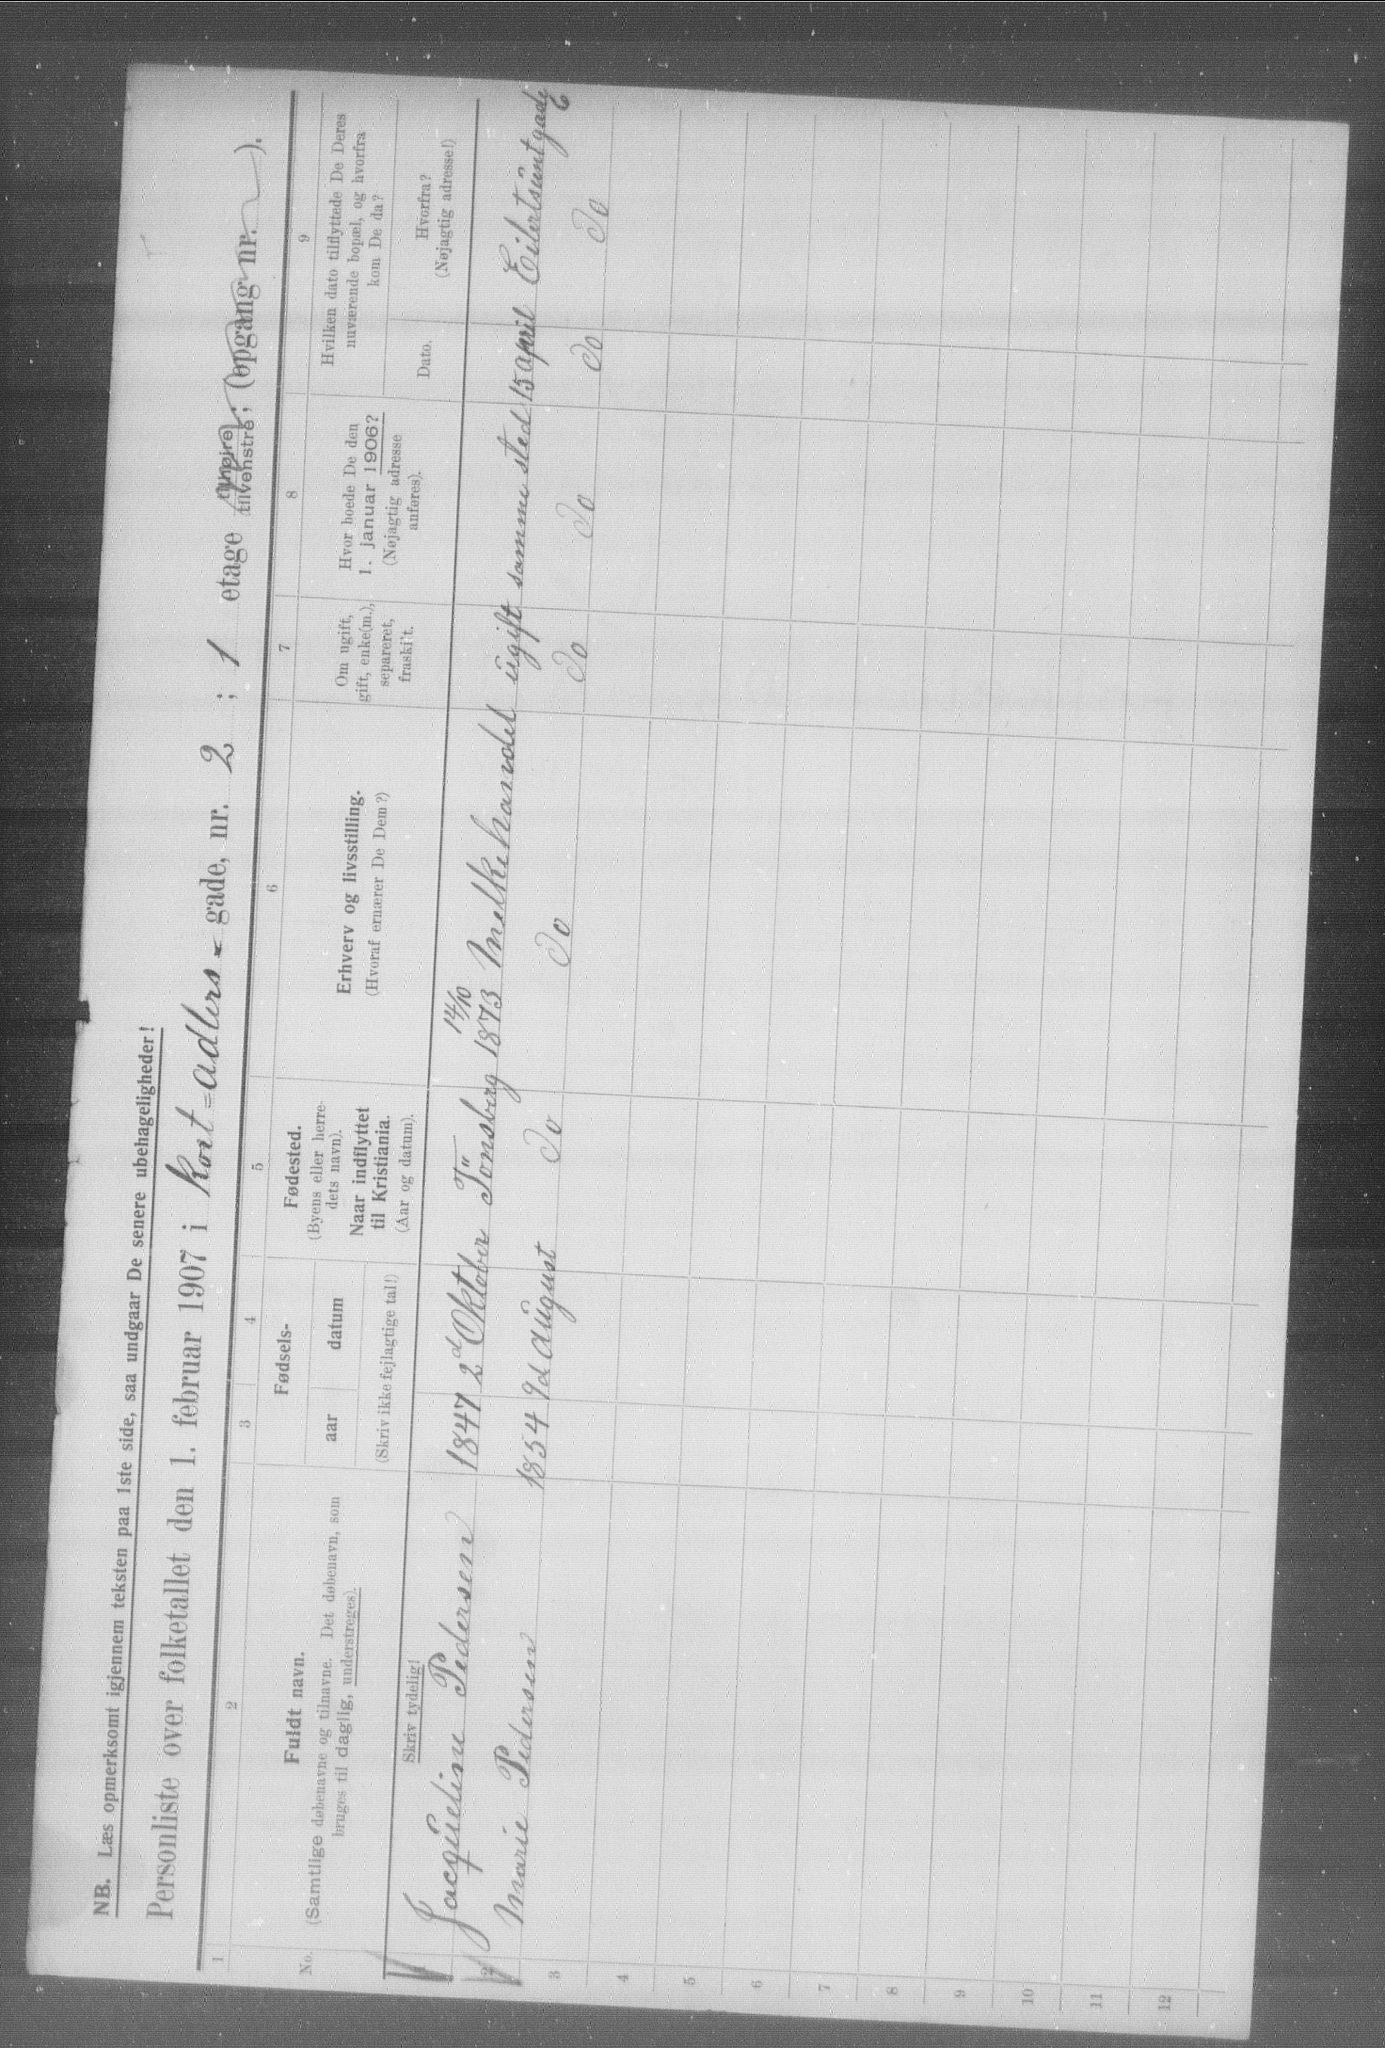 NB. Læs opmerksomt igjennem teksten paa 1ste side, saa undgaar De senere ubehageligheder!
Personliste over folketallet den 1. februar 1907 i Kort=adlers - gade, nr. 2 ; 1 etage tilhøire tilvenstre; (opgang nr. ).
1 2 3 4 5 6 7 8 9
No.
Fuldt navn.
(Samtlige døbenavne og tilnavne. Det døbenavn, som
bruges til daglig, understreges).
Skriv tydelig!
Fødsels-
aar datum
(Skriv ikke fejlagtige tal!)
Fødested.
(Byens eller herre-
dets navn).
Naar indflyttet
til Kristiania.
(Aar og datum).
Erhverv og livsstilling.
(Hvoraf ernærer De Dem?)
Om ugift,
gift, enke(m.),
separeret,
fraski't.
Hvor boede De den
1. januar 1906?
(Nøjagtig adresse
anføres).
Hvilken dato tilflyttede De Deres
nuværende bopæl, og hvorfra
kom De da?
Dato.
Hvorfra?
(Nøjagtig adresse!)
1 Jacqueline Pedersen 1847 2d Oktober Tönsberg 14/10 1873 Melkehandel ugift samme sted 15 april Eilertsuntgade 6
2 Marie Pedersen 1854 9d august Do Do Do Do Do Do
3
4
5
6
7
8
9
10
11
12